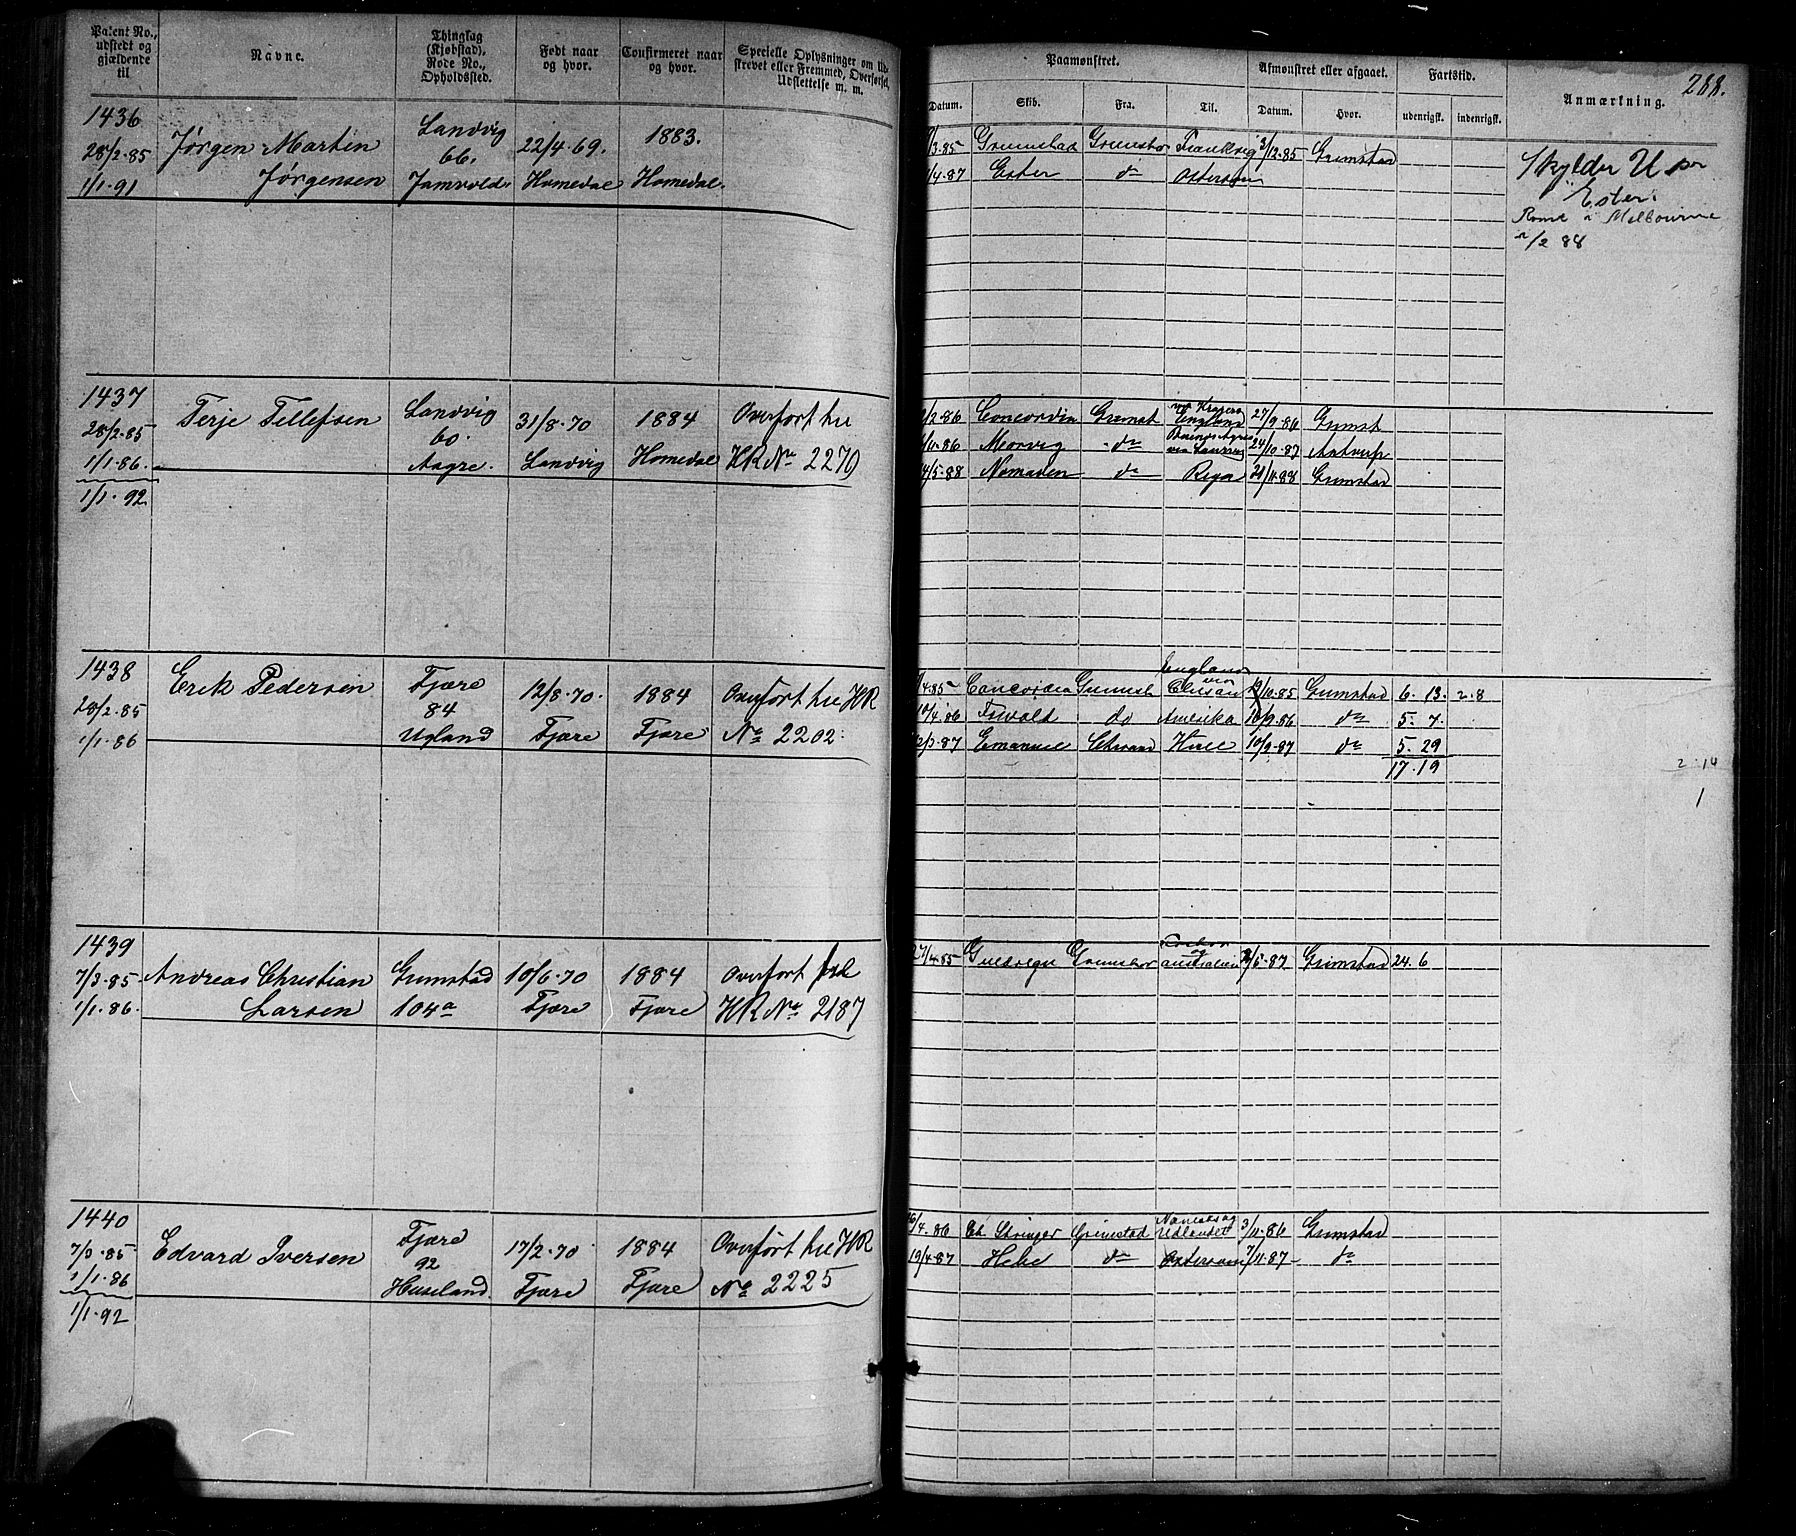 Patent No., udstedt og gjældende til
Navne.
Thinglag (Kjøbstad). Rode No., Opholdssted.
Født naar og hvor.
Confirmeret naar og hvor.
Specielle Oplysninger om til-
skrevet eller Fremmed, Overførsel,
Udslettelse m. m.
Paamønstret.
Afmønstret eller afgaaet.
Fartstid.
Anmærkning.
288.
Datum. Skib. Fra. Til. Datum. Hvor. udenrigsk. indenrigsk.
1436
28/2.85
1/1.91
Jørgen Martin
Jørgensen
Landvig
66.
22/4.69.
Homedal
1883.
Homedal
/3.85 Grimstad 2/12.85 Grimstad
/4.87 Ester do Østersøen
Skylder U pr
Ester.
Rømt i Melbourne
/2 88
1437
28/2.85
1/1.86.
1/1.92
Terje Tellefsen
Landvig
60.
Aagre.
31/8.70
Landvig
1884
Homedal
Overført til
HR No 2279
/2.86 Concordia Grimst England 27/9.86 Grimst
/10.86 Morvig do 24/10.87 Antvrp
/5.88 Nornaden do Riga 21/11.88 Grimstad
1438
28/2.85
1/1.86
Erik Pedersen
Fjære
84
Ugland
12/8.70.
Fjære
1884
Fjære
Overført til HR
No 2202.
England
/4.85 Concordia /10.85 Grimstad 6. 13. 2.8
/4.86 do Amerika /9.86 do 5. 7.
/3.87 Emanuel 10/9.87 do 5. 29
17.19
2.14
1
1439
7/3.85
1/1.86.
Andreas Christian
Larsen
Grimstad
104a
10/6.70
Fjære
1884
Fjære
Overført til
HR No 2187
27/4.85 og Australien /5.87 Grimstad 24.6
1440
7/3.85
1/1.86
1/1.92
Edvard Iversen
Fjære
92
17/2.70
Fjære
1884
Fjære
Overført til HR
No 2225
/4.86 Grimstad Udlandet 3/11.86 Grimstad
19/4.87 Hebe do Østersøen 7/11.87 do